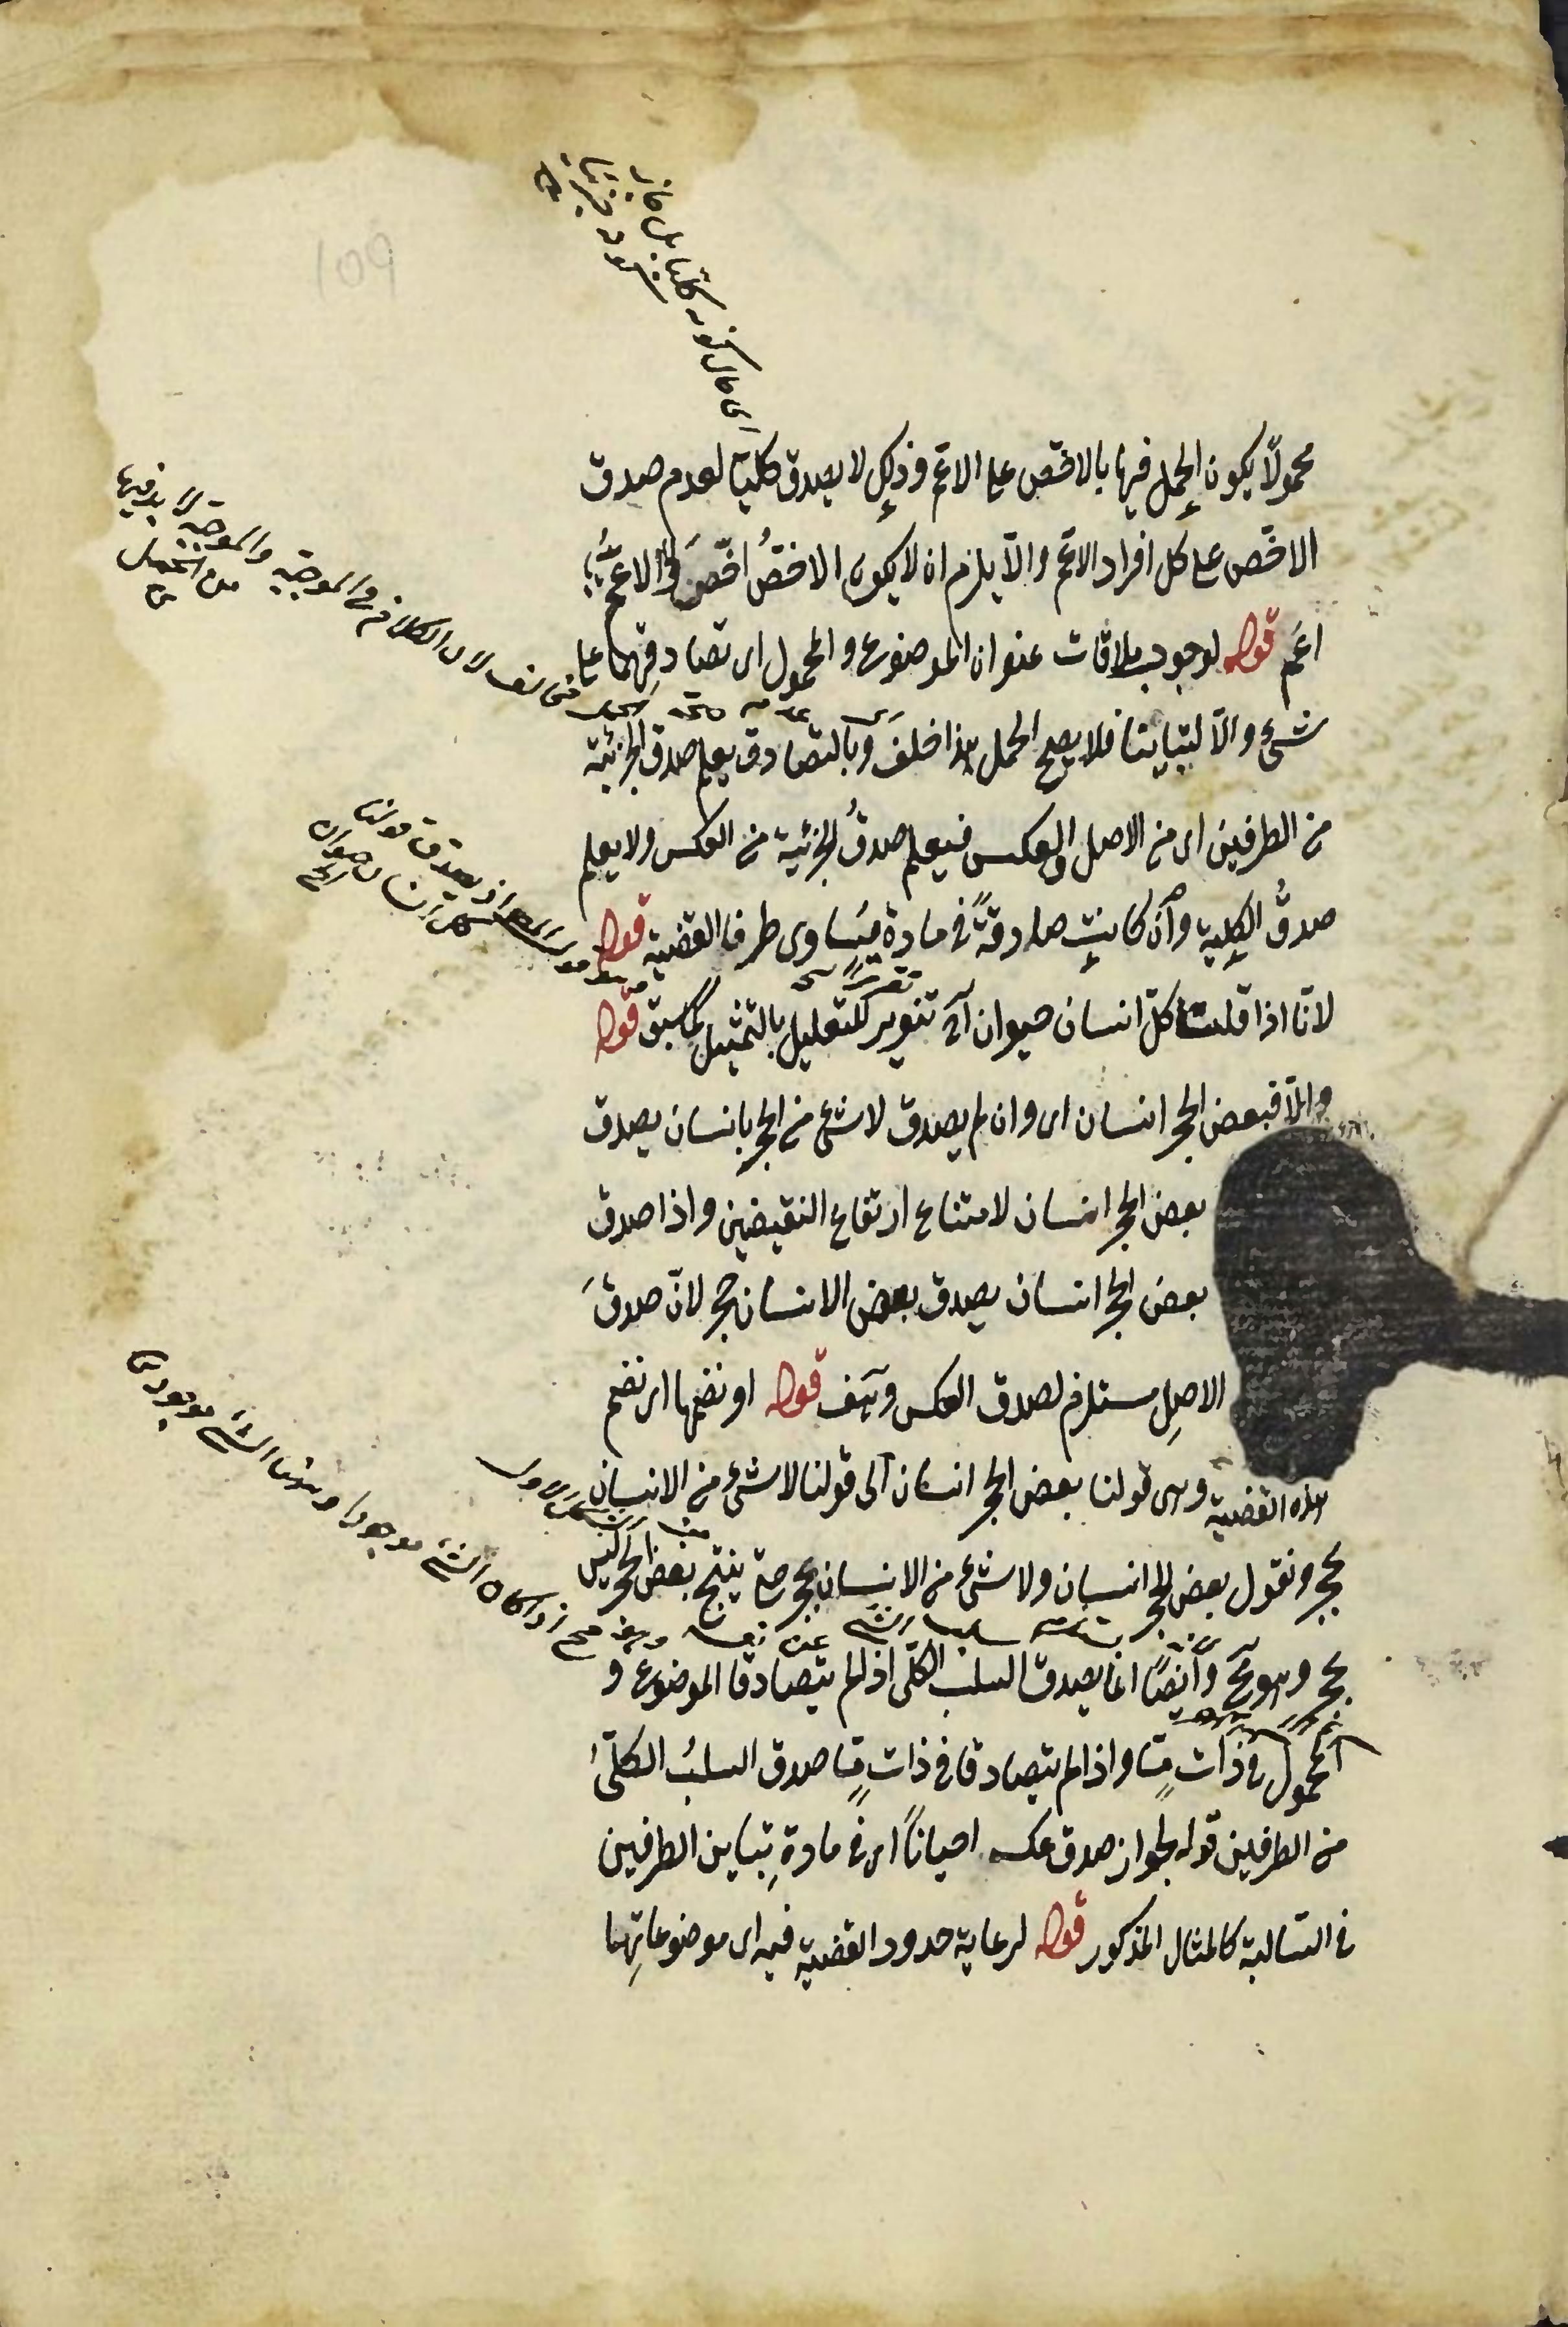 محمولًا يكون الحمل فيها بالاخص على الاعم وذلك لا يصدق كليا لعدم صدق
الاخص على كل افراد الاعم والّا يلزم ان لا يكون الاخصُ اخصَ والاعمُّ
اعَم قوله لوجوب ملاقات عنوان الموضوع والمحمول اى تصادقِهما على
شئ والّا لتباينتا فلا يصح الحمل هذا خلف وبالتصادق يعلم صدق الجزئية
من الطرفين اى من الاصل والعكس فيعلم صدقُ الجزئية من العكس ولا يعلم
صدقُ الكلية وان كانت صادقةً فى مادة يتساوى طرفا القضية قوله
لانا اذا قلنا كلّ انسان حيوان آه تنوير للتعليل بالتمثيل كما سبق قوله
والّا فبعض الحجر انسان اى وان لم يصدق لا شئ من الحجر بانسان يصدق
بعض الحجر انسان لامتناع ارتفاع النقيضين واذا صدق
بعض الحجر انسان يصدق بعض الانسان حجر لانّ صدقَ
الاصلِ مستلزم لصدق العكس وهف قوله او نضمها اى نضم
هذه القضية وهى قولنا بعض الحجر انسان الى قولنا لا شئ من الانسان
بحجر ونقول بعض الحجر انسان ولا شئ من الانسان بحجر ينتج بعض الحجر ليس
بحجر وهو مح وايضًا انما يصدق السلب الكلى اذا لم يتصادقا الموضوع و
المحمول فى ذات مّا واذا لم يتصادقا فى ذاتٍ مّا صدق السلبُ الكلّىُ
من الطرفين قوله لجواز صدق عكسه احيانًا اى فى مادةِ تباين الطرفين
فى السالبة كالمثال المذكور قوله لرعاية حدود القضية فيه اى موضوعاتِها
اى حال كونه كليا بل
لان الكلام فى الموجبة والموجبة لا بد فيها
من الحمل
يصدق قولنا
كل انسان حيوان
اذا كان الشئ موجودا
الشئ موجود
109